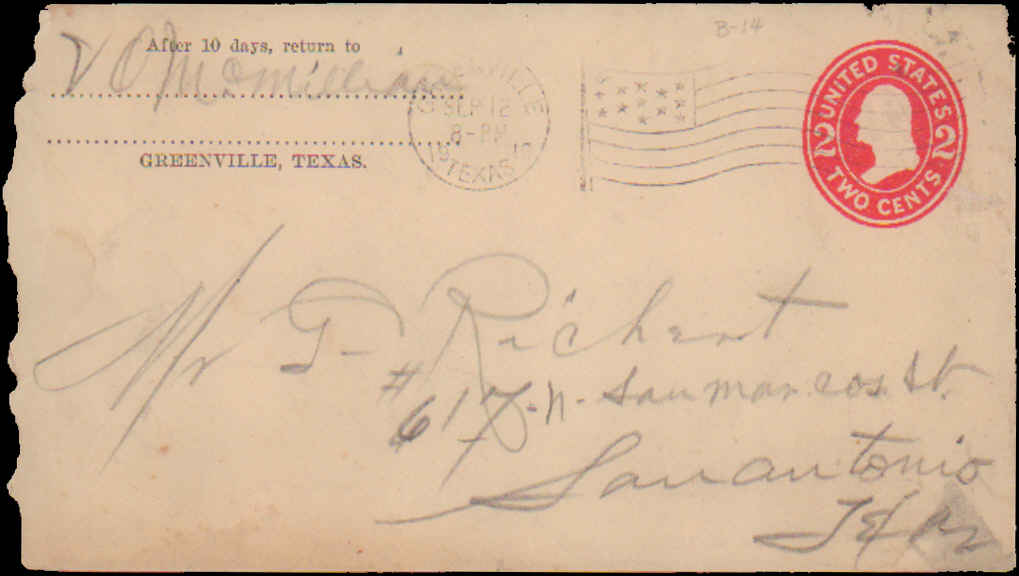 B-14
After 10 days, return to
V O McMillian
GREENVILLE, TEXAS.
GREENVILLE
SEP 12
8-PM
TEXAS
UNITED STATES
2 2
TWO CENTS
Mr G Richert
# 617-N-San marcos St.
San antonio
Texas